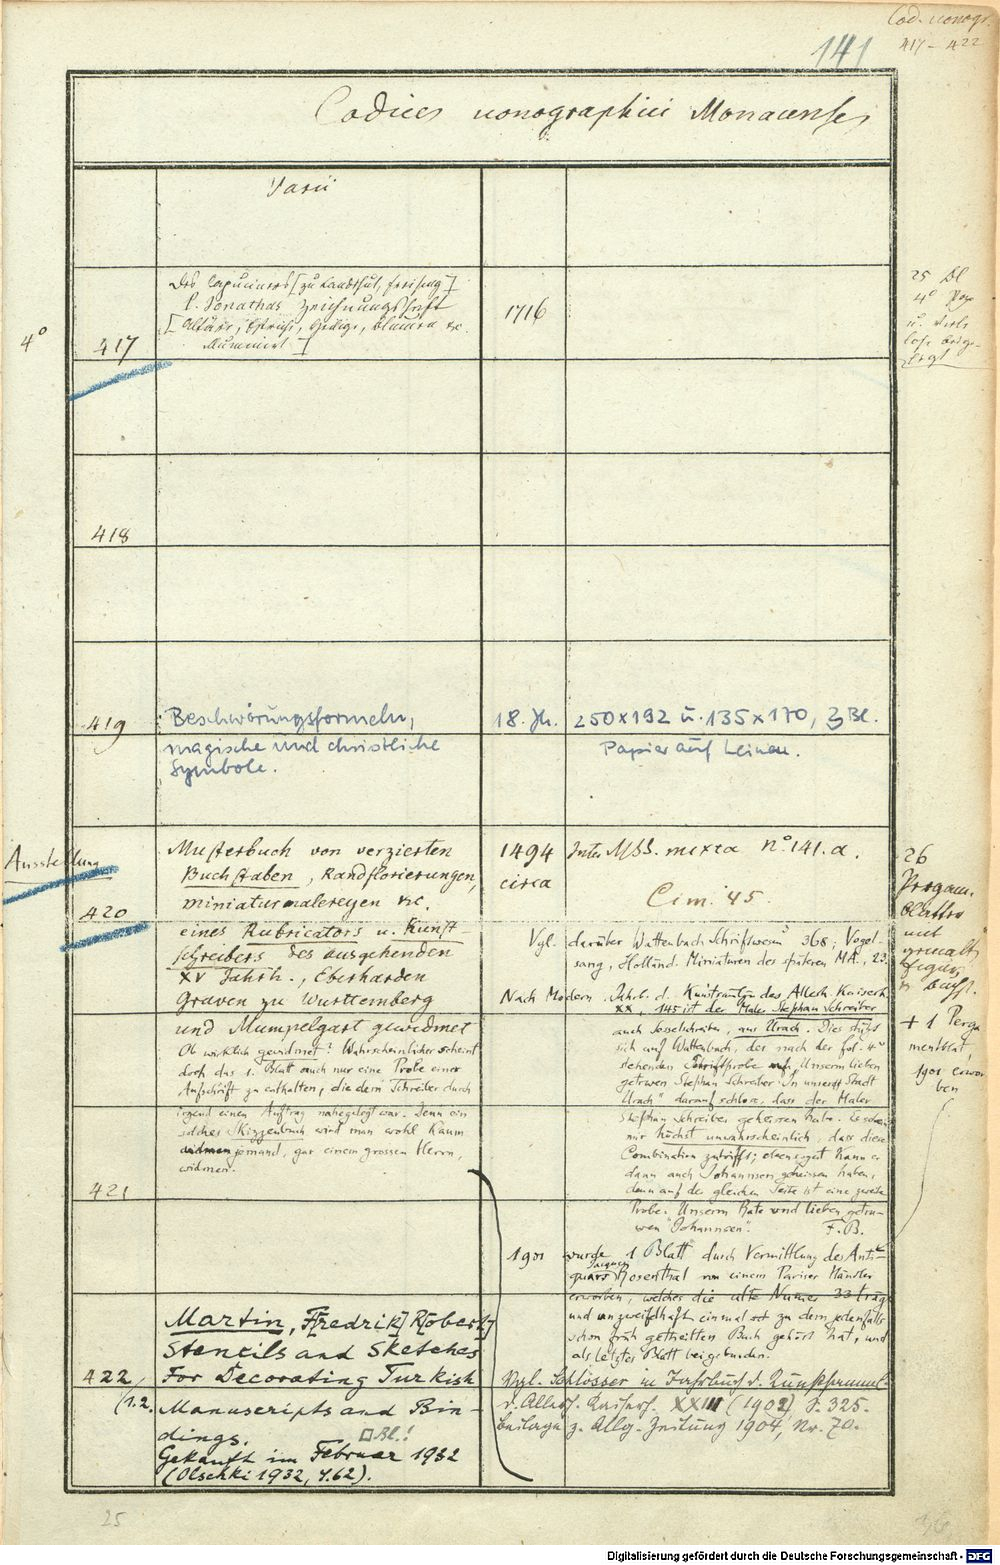 Cod. iconogr.
417-422
141
Codices iconographici Monacenses
Varii
Des Capuciners [zu Landshut, Freising]
P. Jonathas Zeichnungsheft
[Altäre, Blumen
Illuminirt]
1716
25 Bl
4°
4°
417
418
419
Beschwörungsformeln,
magische und christliche
Symbole.
18. Jh.
250x192 u. 135x170, 3 Bl.
Papier auf Leinen.
Ausstellung
420
Musterbuch von verzierten
Buchstaben, Randflorierungen,
Miniaturmalereyen etc.
eines Rubricators u. Kunst-
schreibers des ausgehenden
XV Jahrh., Eberharden
Graven zu Württemberg
und Mümpelgart gewidmet
Ob wirklich gewidmet? Wahrscheinlicher scheint
doch das 1. Blatt auch nur eine Probe einer
Aufschrift zu enthalten, die dem Schreiber durch
irgend einen Auftrag nahegelegt war. Denn ein
solches Skizzenbuch wird man wohl kaum
jemand, gar einem grossen Herrn,
widmen.
1494
circa
Inter MSS. mixta n° 141.a.
Cim. 45
Vgl. darüber Wattenbach Schriftwesen 368; Vogel-
sang, Holländ. Miniaturen des späteren MA., 23.
Nach Modern. Jahrb. d. Kunstsamlgn des Allerh. Kaiserh.
XX, 145 ist der Maler Stephan Schreiber
aus Urach. Dies stützt
sich auf Wattenbach, der nach der fol. 4v
stehenden Schriftprobe Unserm lieben
getrwen Stephan Schreiber in unserer Stadt
Urach" darauf schloss, dass der Maler
Stephan Schreiber geheissen habe. Es scheint
mir höchst unwahrscheinlich, dass diese
Combination zutrifft; ebensogut kann er
dann auch Johannsen geheissen haben,
denn auf der gleichen Seite ist eine zweite
Probe: Unserm Rate und lieben getru-
wen "Johannsen".
F. B.
26
Pergam.
Blätter
mit
gemalt.
Figur.
u. Buchst.
+ 1 Perga
mentblat,
1901 erwor
ben
421
1901 wurde 1 Blatt durch Vermittlung des Anti-
quars Jacques Rosenthal von einem Pariser Händler
erworben, welches die alte Numer 33 trägt
und unzweifelhaft einmal zu dem jedenfalls
schon früh getheilten Buch gehört hat, und
als letztes Blatt beigebunden.
Vgl. Schlosser im Jahrbuch d. Kunstsamml.
d. Allerh. Kaiserh. XXIII (1902) S. 325.
Beilage z. Allg. Zeitung 1904, Nr. 70.
422
(1.2.
Martin, F[redrik] R[obert]
Stencils and Sketches
For Decorating Turkish
Manuscripts and Bin-
dings.
Bl.!
Gekauft im Februar 1932
(Olschki 1932, 4.62).
25
Digitalisierung gefördert durch die Deutsche Forschungsgemeinschaft - DFG